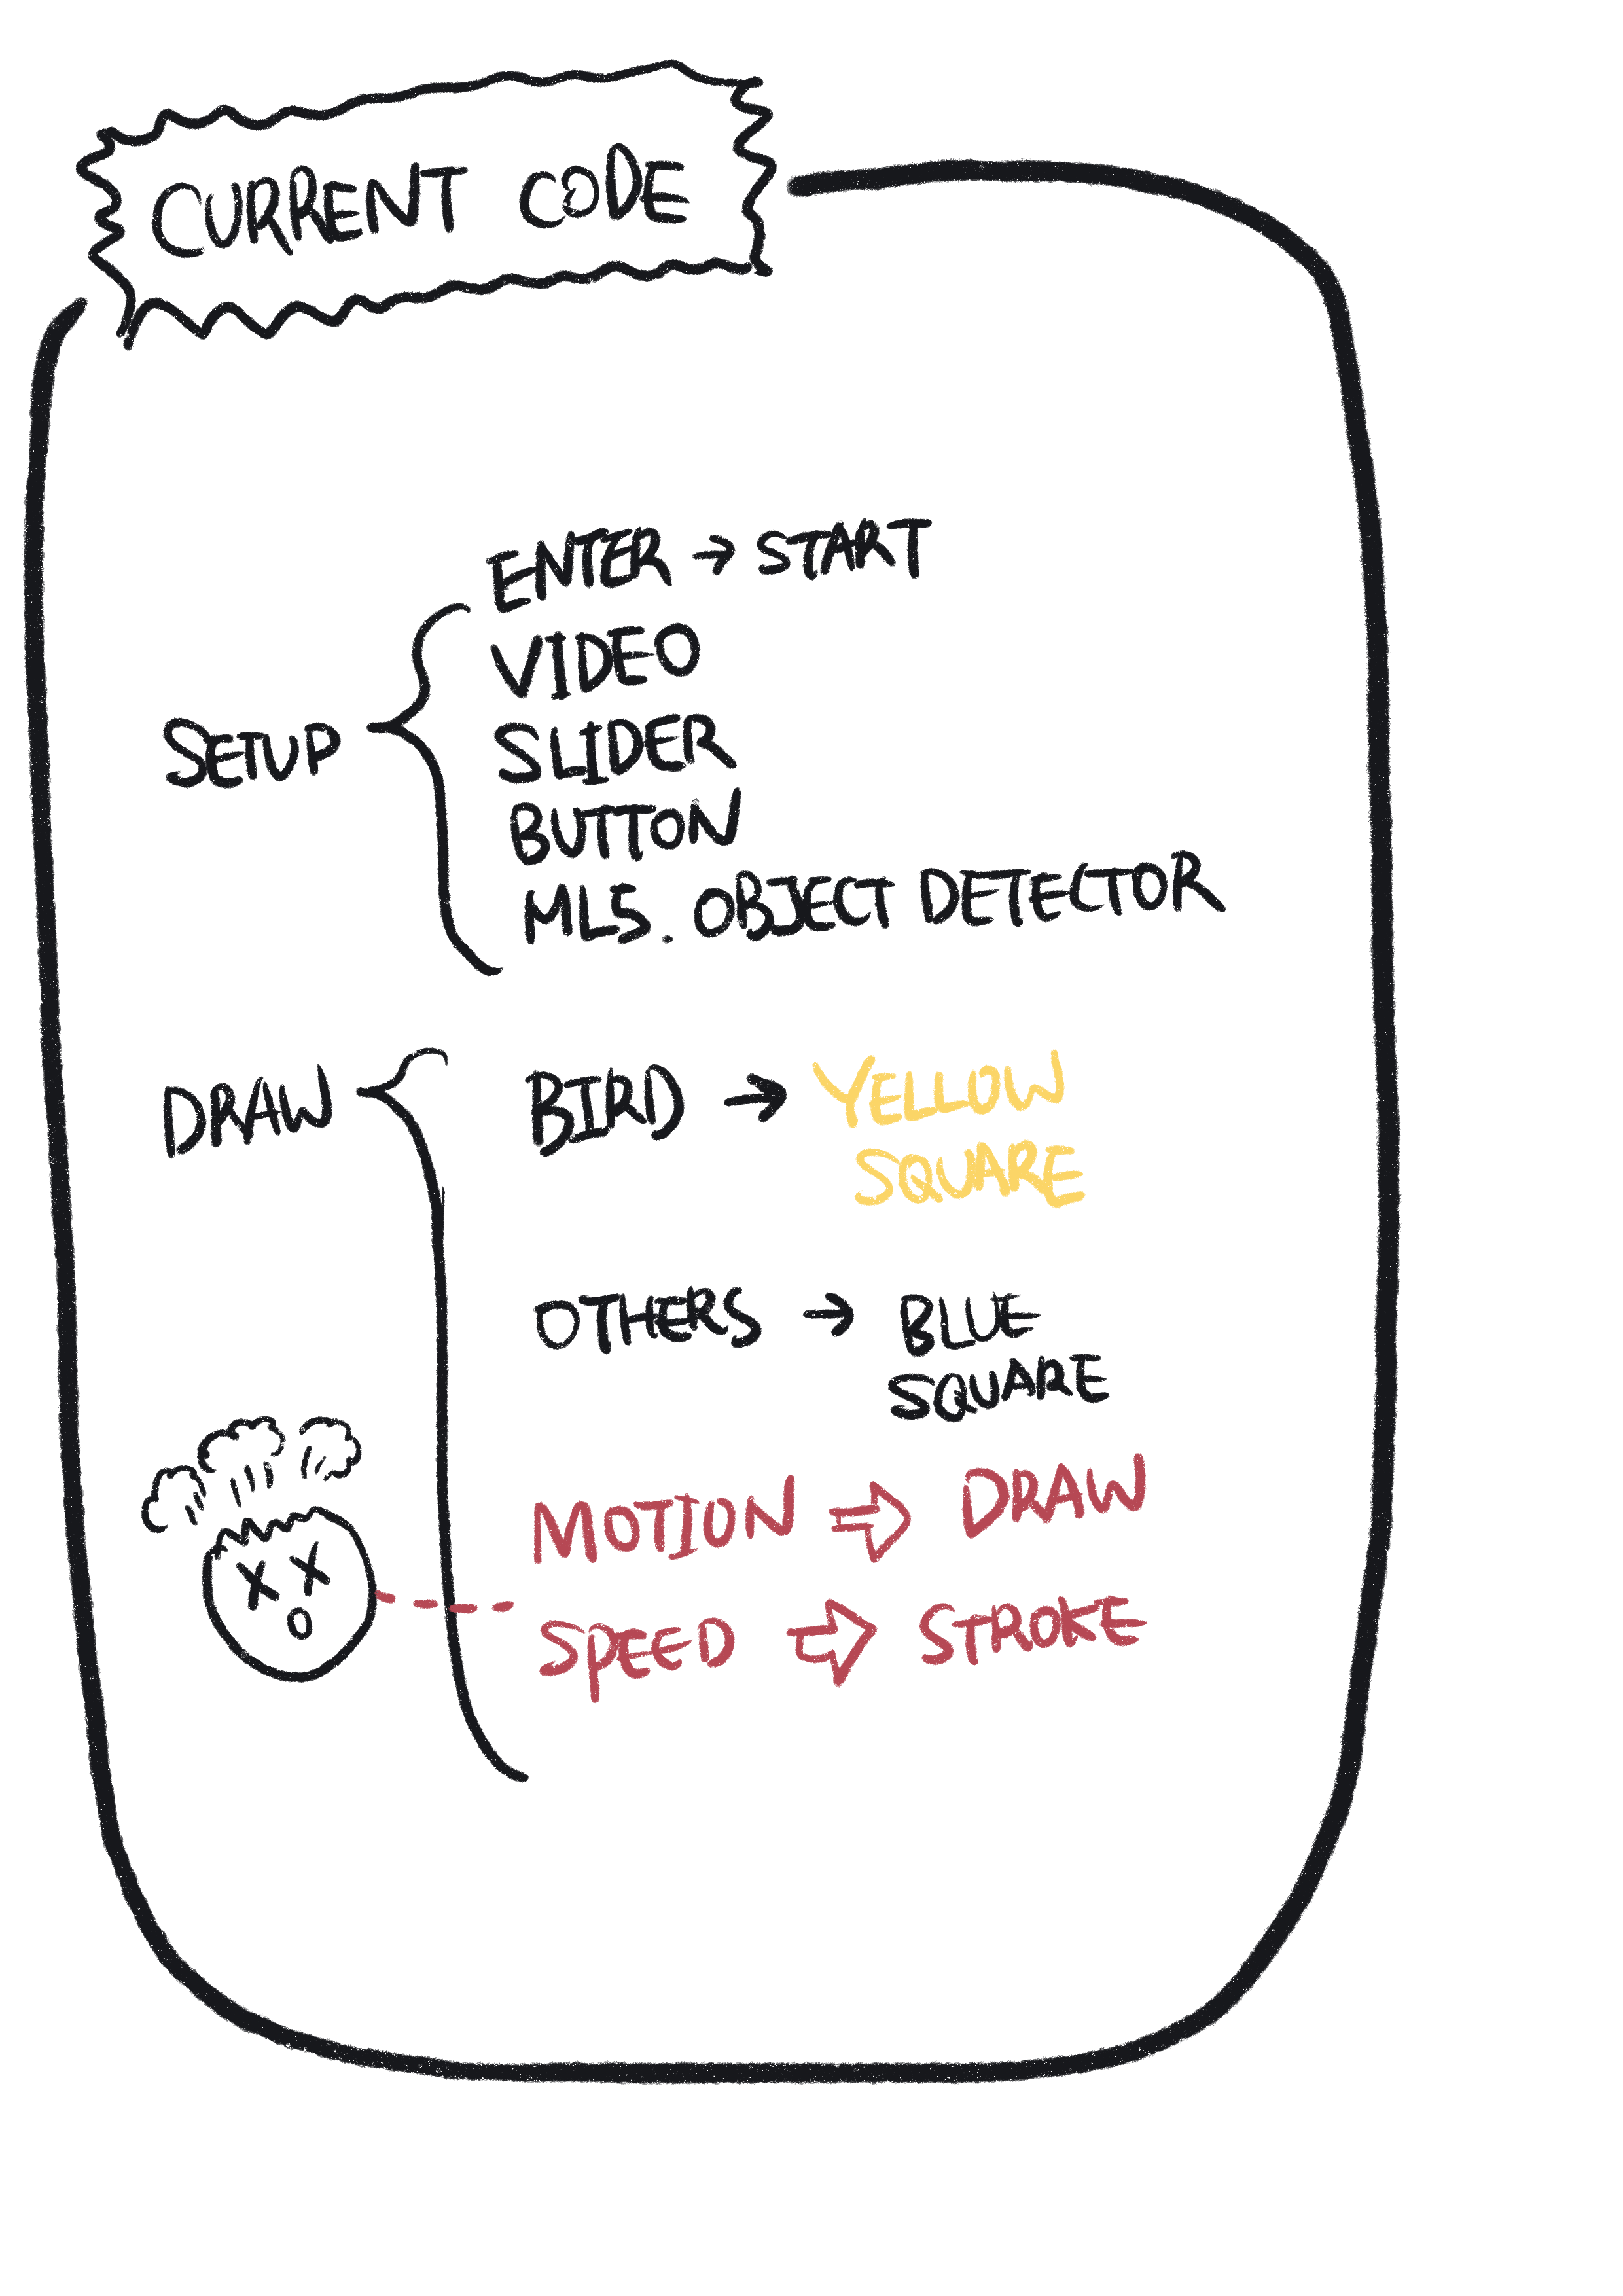 CURRENT CODE
SETUP
ENTER → START
VIDEO
SLIDER
BUTTON
ML5. OBJECT DETECTOR
DRAW
BIRD → YELLOW
SQUARE
OTHERS → BLUE
SQUARE
MOTION ⇒ DRAW
SPEED ⇒ STROKE